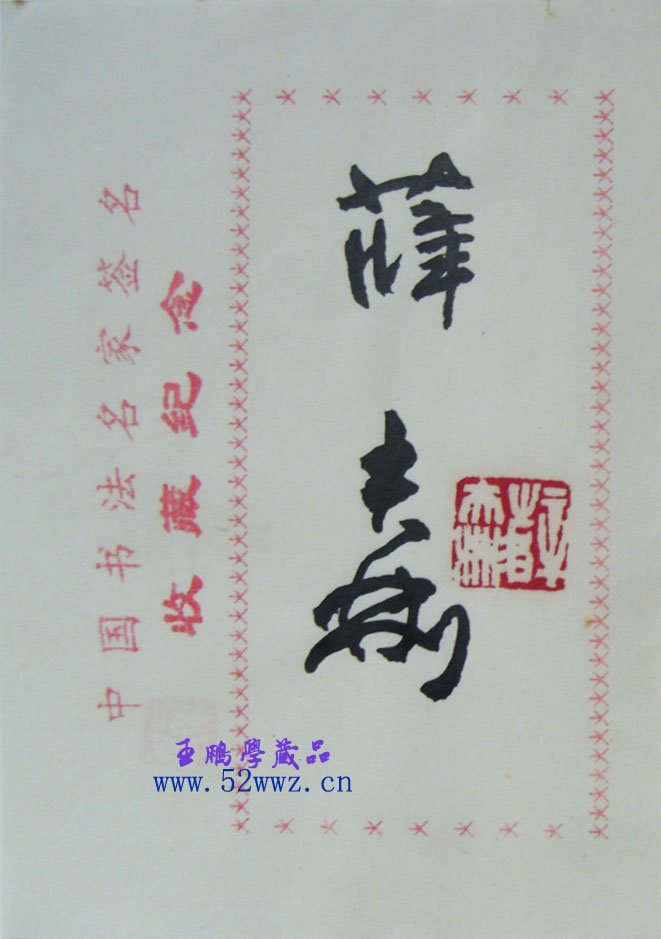 中国书法名家签名
收藏纪念
薛夫彬
王鵬學藏品
www.52wwz.cn